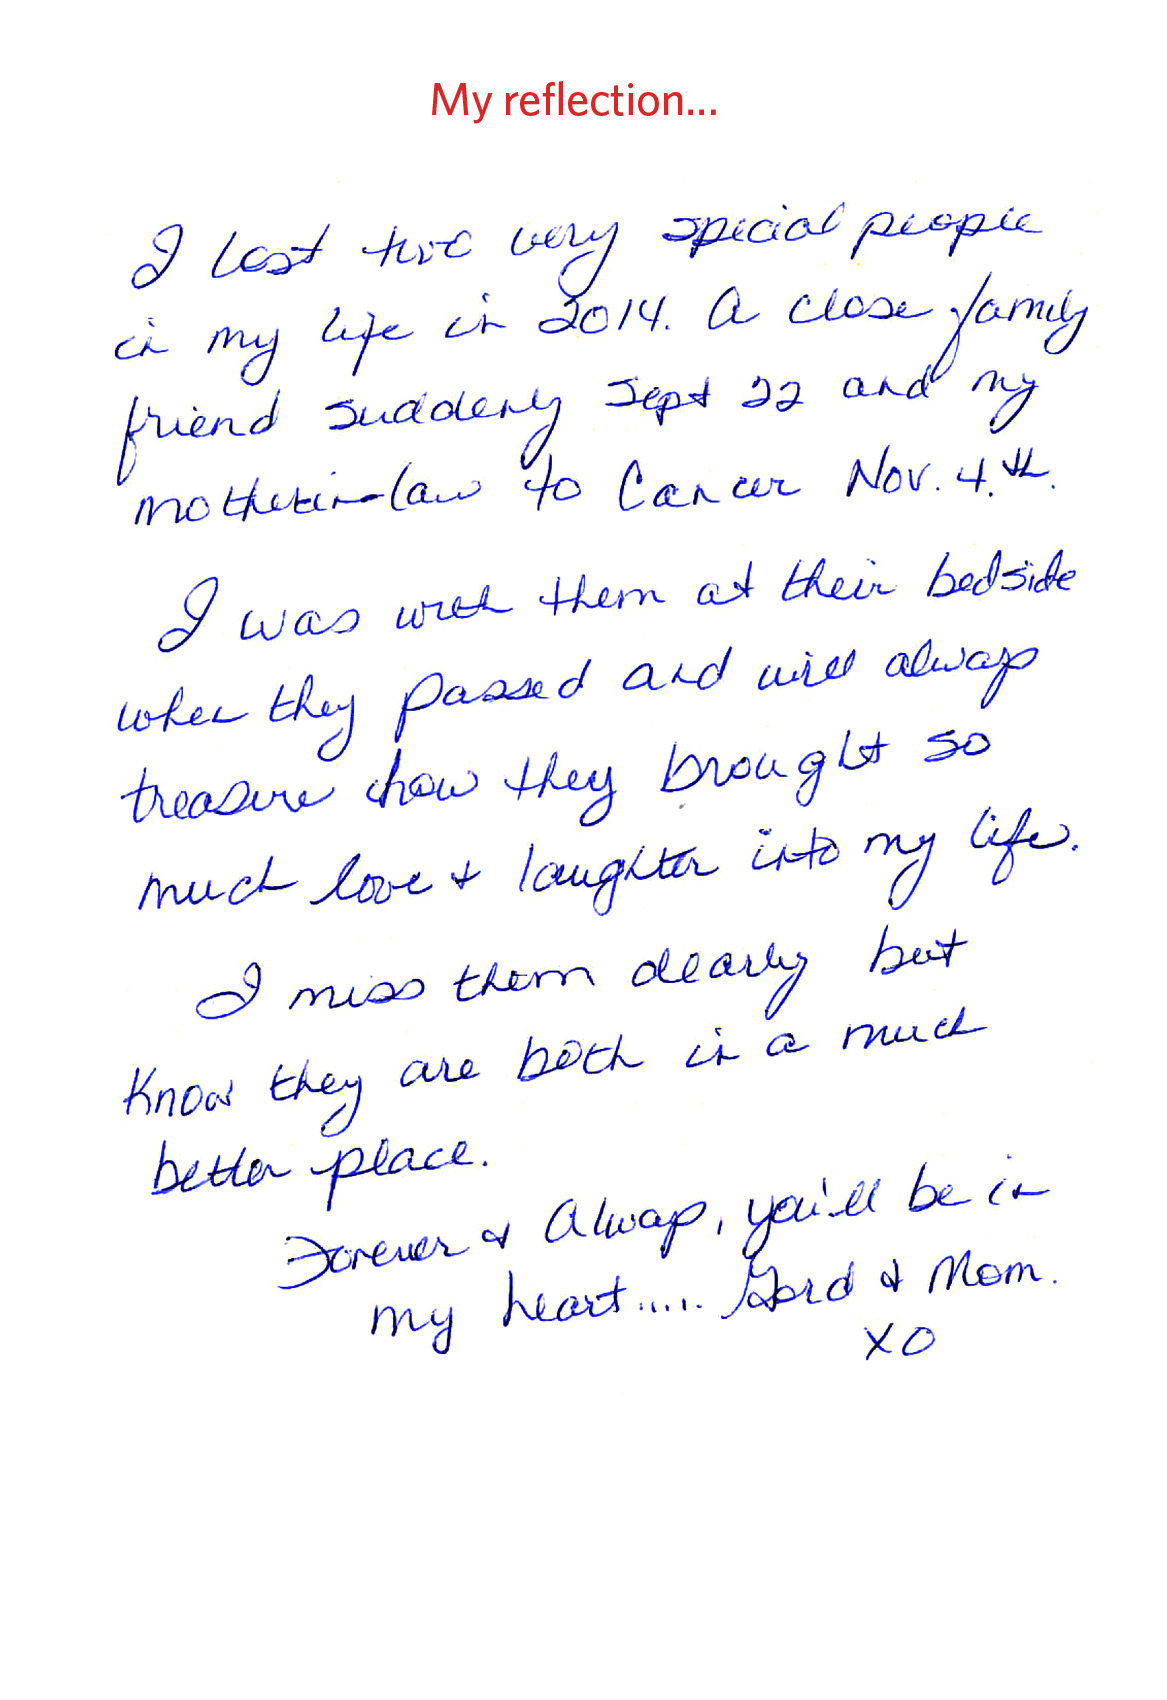 My reflection...
I lost two very special people
in my life in 2014. A close family
friend suddenly Sept 22 and my
motherin-law to Cancer Nov. 4.th.
I was with them at their bedside
when they passed and will always
treasure how they brought so
much love & laughter into my life.
I miss them dearly but
Know they are both in a much
better place.
Forever & Always, you'll be in
my heart..... Gord & Mom.
XO